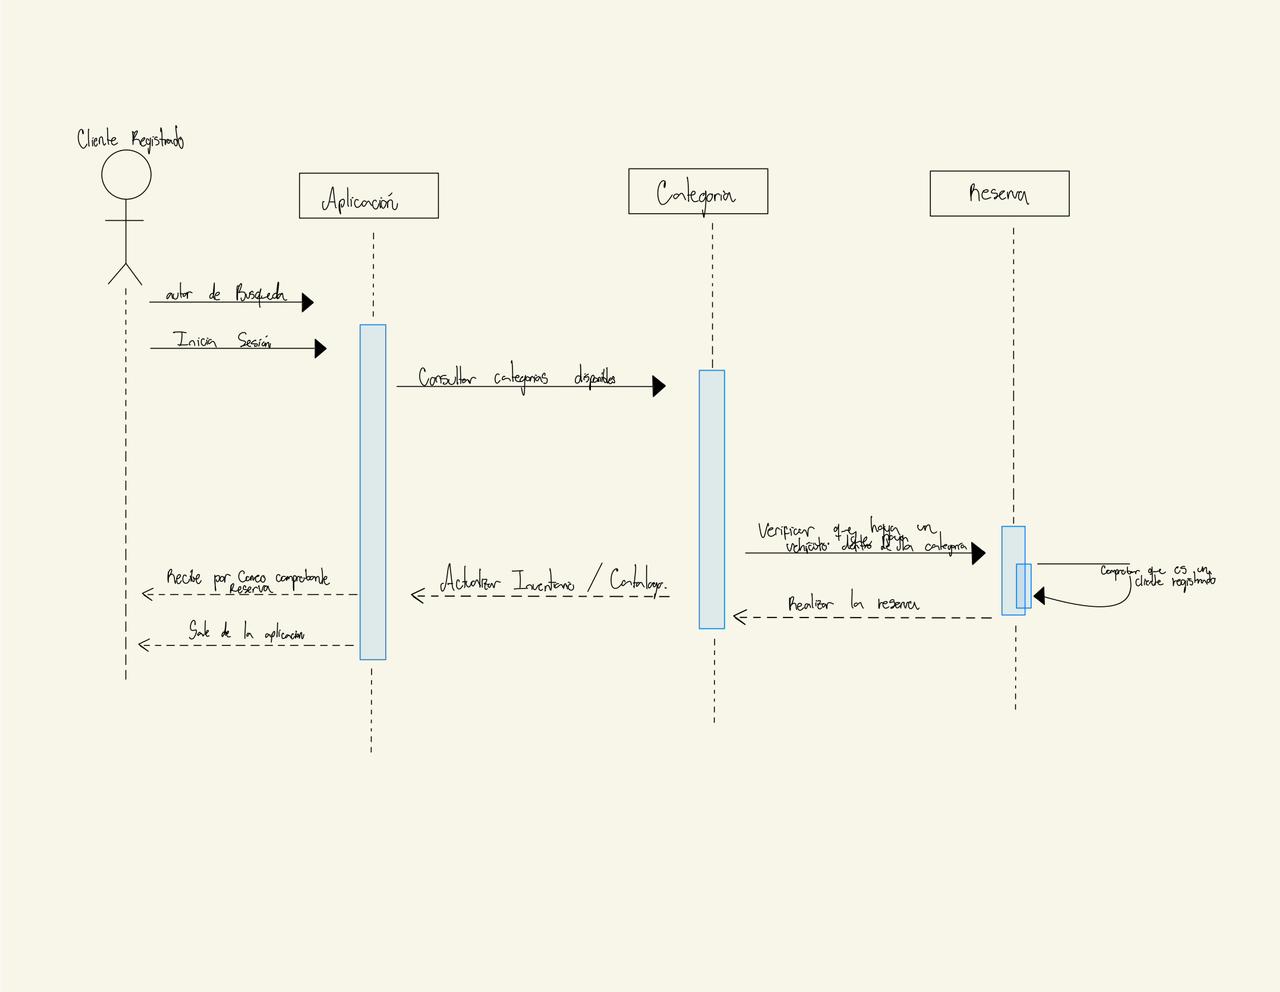 Cliente Registrado
Aplicación
Categoria
Reserva
autor de Busqueda
Inicia Sesión
Consultar categorias disponibles
Verificar que haya un
vehiculo dentro de la categoria
Comprobar que es un
cliente registrado
Recibe por Correo comprobante
Reserva
Actualizar Inventario / Catalogo.
Realizar la reserva
Sale de la aplicacion